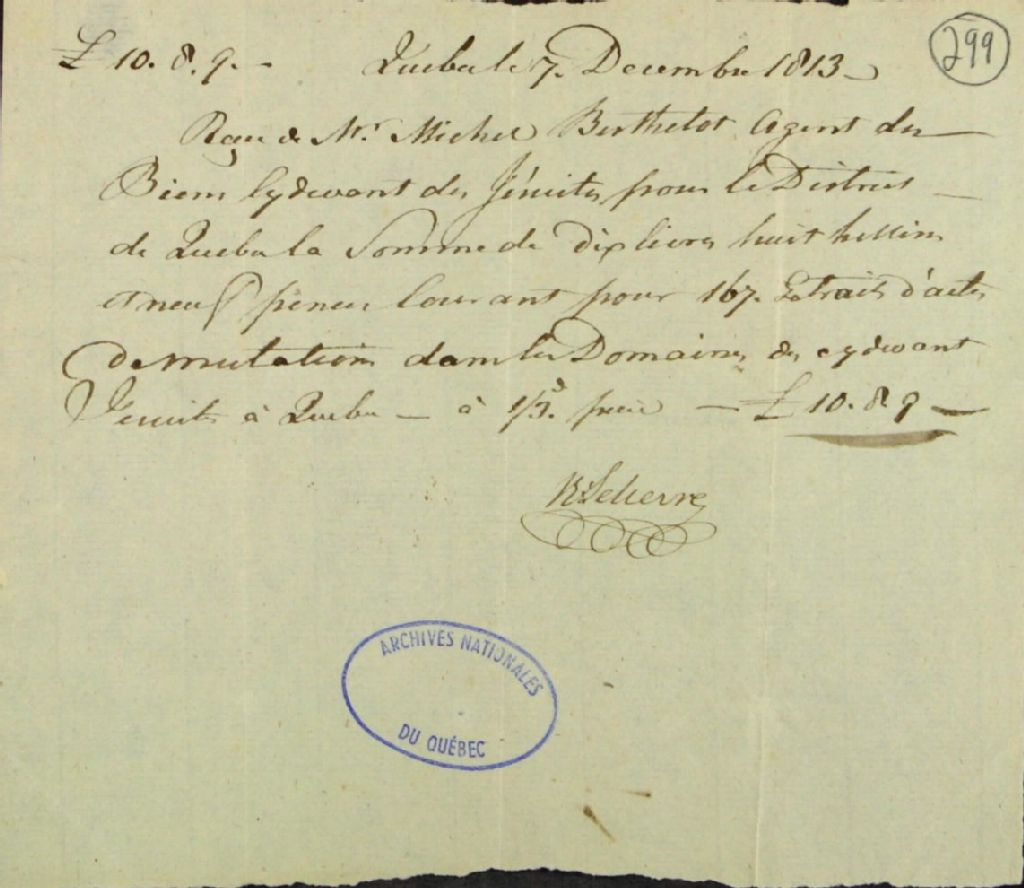 299
£ 10. 8. 9. - Quebec le 7. Decembre 1813 -
Reçu de Mr. Michel Berthelot Agent des
Biens cydevant des Jésuites pour le District
de Quebec la Somme de dix livres huit chellins
et neuf pences Courant pour 167. Extraits d'actes
de mutations dans les Domaines des cydevant
Jesuites à Quebec - à 1/3.d piece - £ 10. 8. 9 -
ARCHIVES NATIONALES
DU QUÉBEC